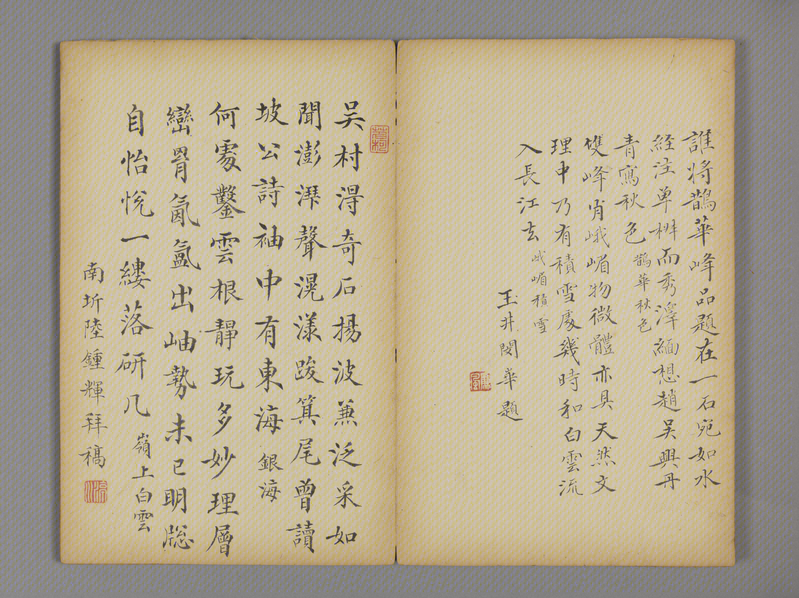 誰將鵲華峰品題在一石宛如水
経注單椒而秀澤緬想趙吳興丹
青寫秋色 鵲華秋色
雙峰肖峨嵋物微體亦具天然文
理中乃有積雪處幾時和白雲流
入長江去 峨嵋積雪
玉井閔華題
吴村淂奇石揚波兼泛采如
聞澎湃聲滉漾跋箕尾曾讀
坡公詩袖中有東海 銀海
何處鑿雲根靜玩多妙理層
巒胃氤氳出岫勢未已明牕
自怡悅一縷落研几 嶺上白雲
南圻陸鍾輝拜稿